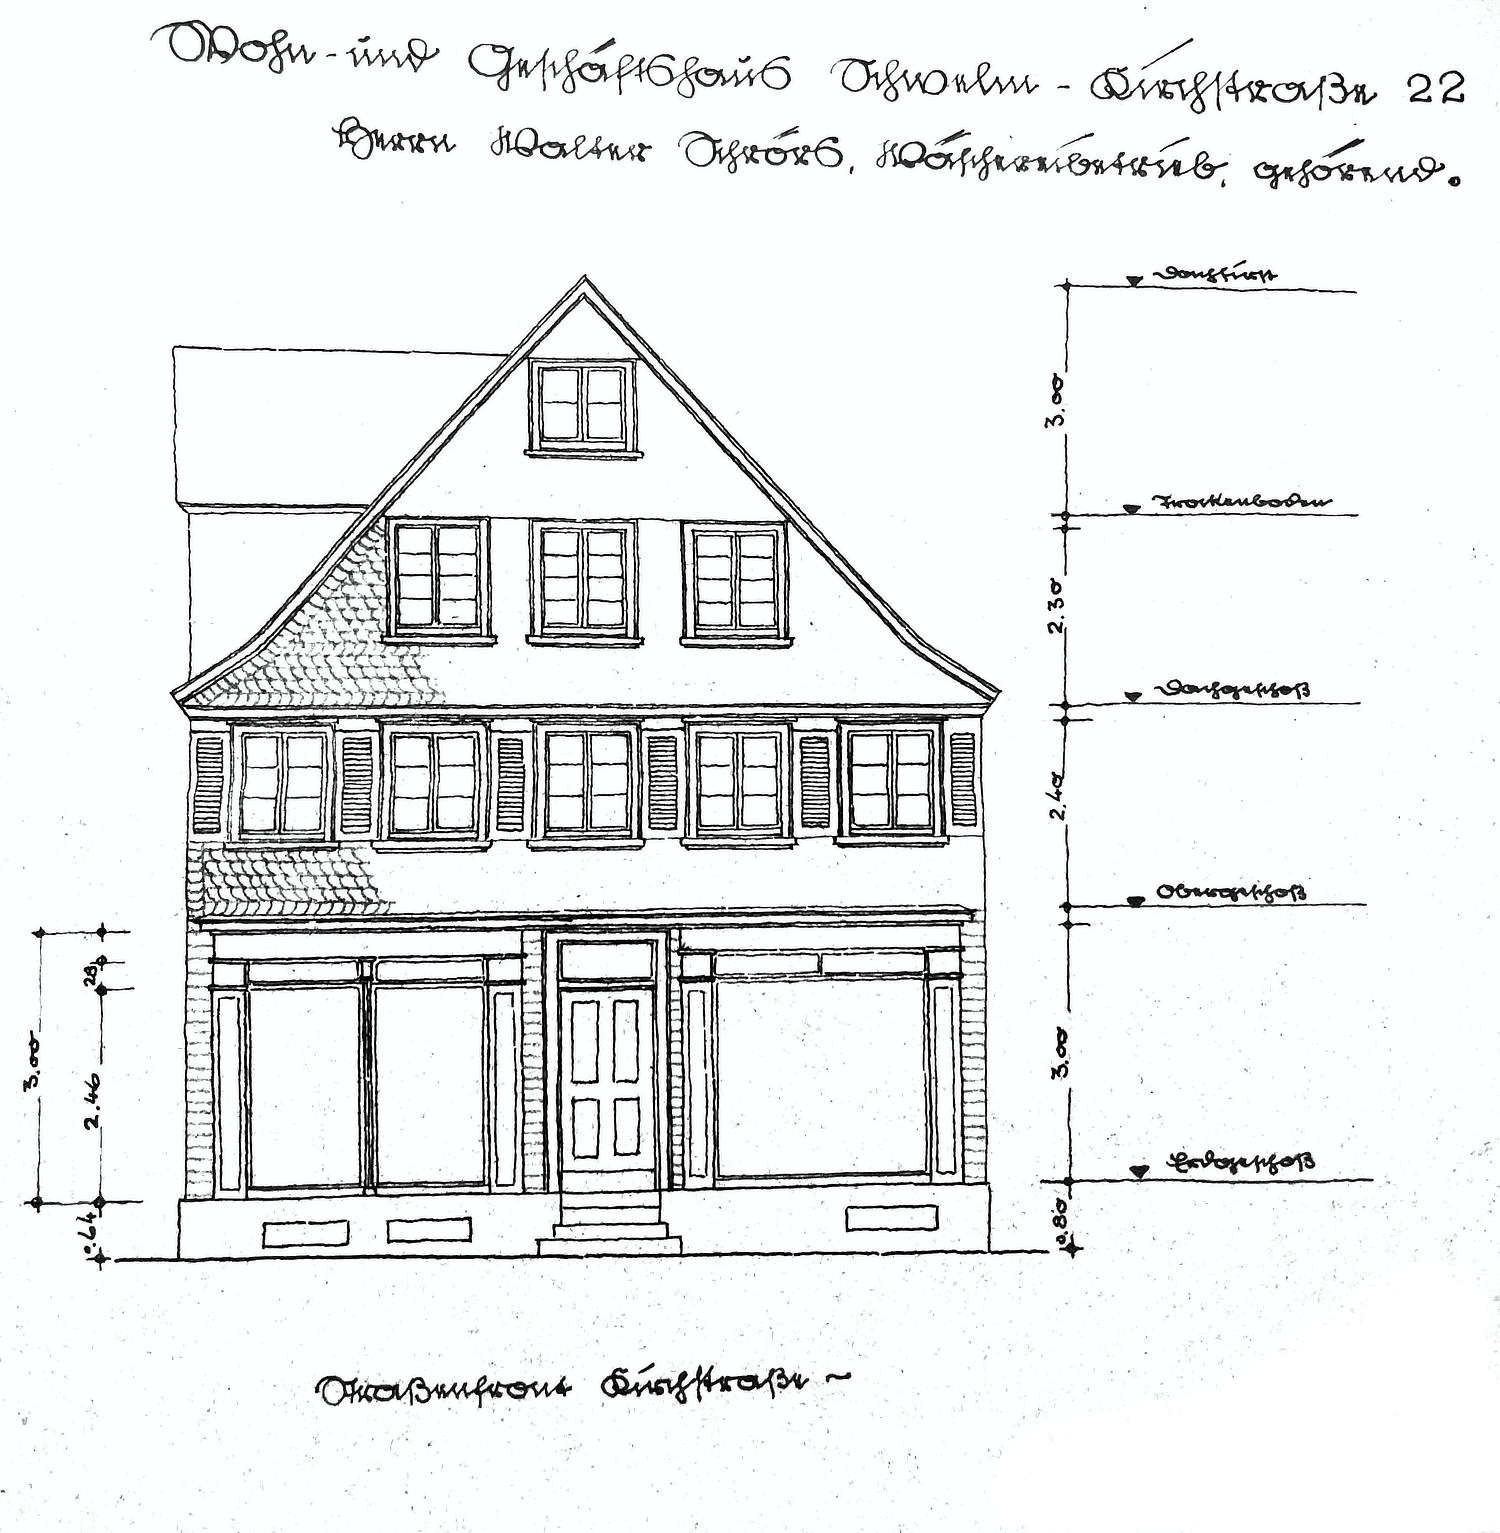 Wohn- und Geschäftshaus Schwelm - Kirchstraße 22
Herrn Walter Schrörs, Wäschereibetrieb, gehörend.
Dachfirst
3.00
Trockenboden
2.30
Dachgeschoß
2.40
Obergeschoß
3.00
Erdgeschoß
0.80
28
3.00
2.46
0.64
Straßenfront Kirchstraße ~